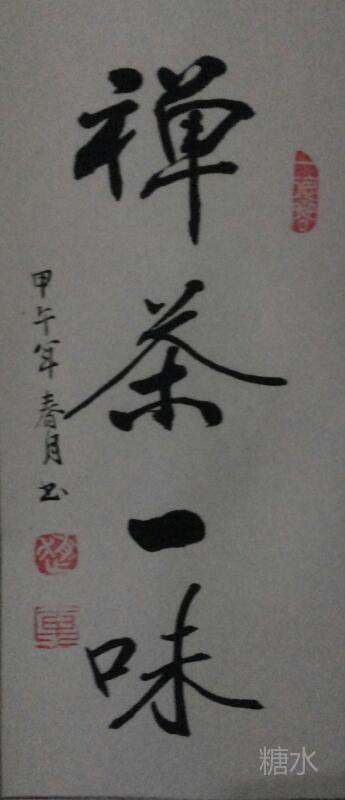 禅茶一味
甲午年春月书
糖水